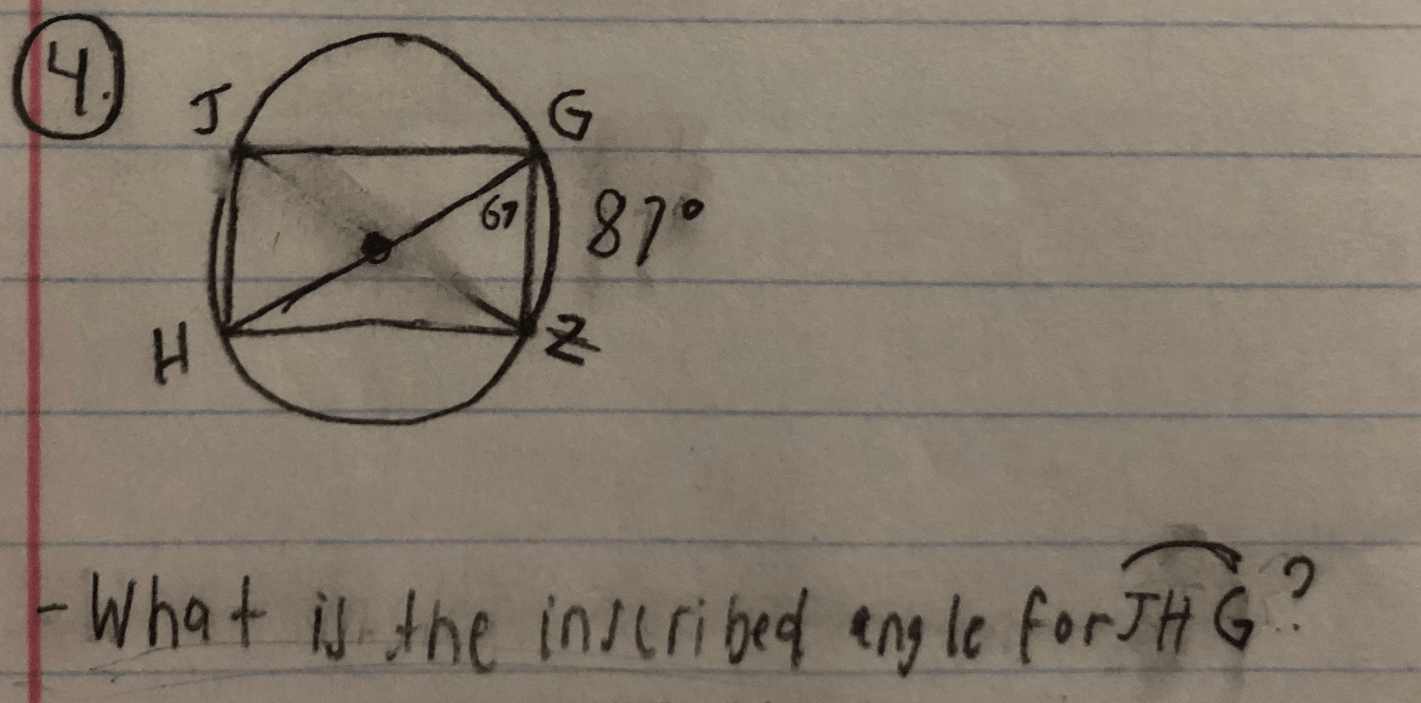 4.
J G
67 87°
H Z
- What is the inscribed angle for JHG?